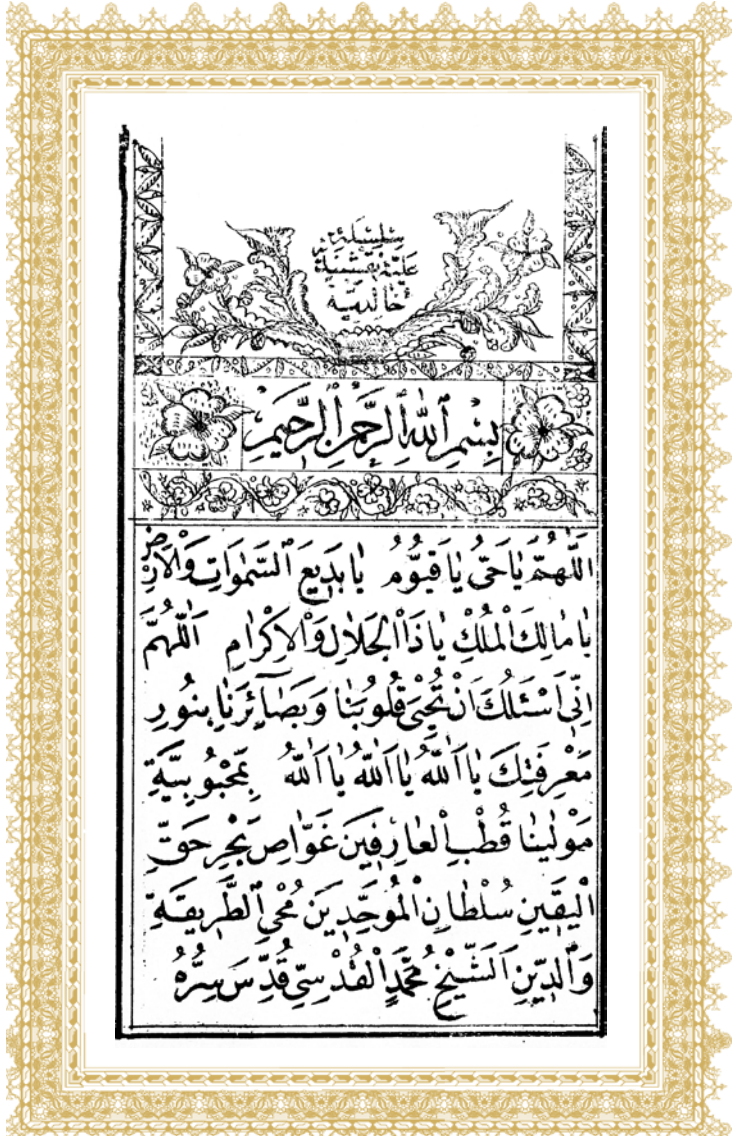 سِلْسِلَهِٔ
عَلِيَّهِٔ نَقْشِبَنْدِيَّهِٔ
خَالِدِيَّه
بِسْمِ ٱللّٰهِ ٱلرَّحْمٰنِ ٱلرَّحِيمِ
اَللّٰهُمَّ يَا حَيُّ يَا قَيُّومُ يَا بَدِيعَ ٱلسَّمٰوَاتِ وَالْاَرْضِ
يَا مَالِكَ الْمُلْكِ يَا ذَا الْجَلَالِ وَالْاِكْرَامِ اَللّٰهُمَّ
اِنِّي اَسْئَلُكَ اَنْ تُحْيِيَ قُلُوبَنَا وَبَصَآئِرَنَا بِنُورِ
مَعْرِفَتِكَ يَا اَللّٰهُ يَا اَللّٰهُ يَا اَللّٰهُ بِمَحْبُوبِيَّةِ
مَوْلٰينَا قُطْبِ الْعَارِفِينَ غَوَّاصِ بَحْرِ حَقِّ
الْيَقِينِ سُلْطَانِ الْمُوَحِّدِينَ مُحْيِ ٱلطَّرِيقَةِ
وَٱلدِّينِ اَلشَّيْخِ مُحَمَّدٍ الْقُدْسِيِّ قُدِّسَ سِرُّهُ